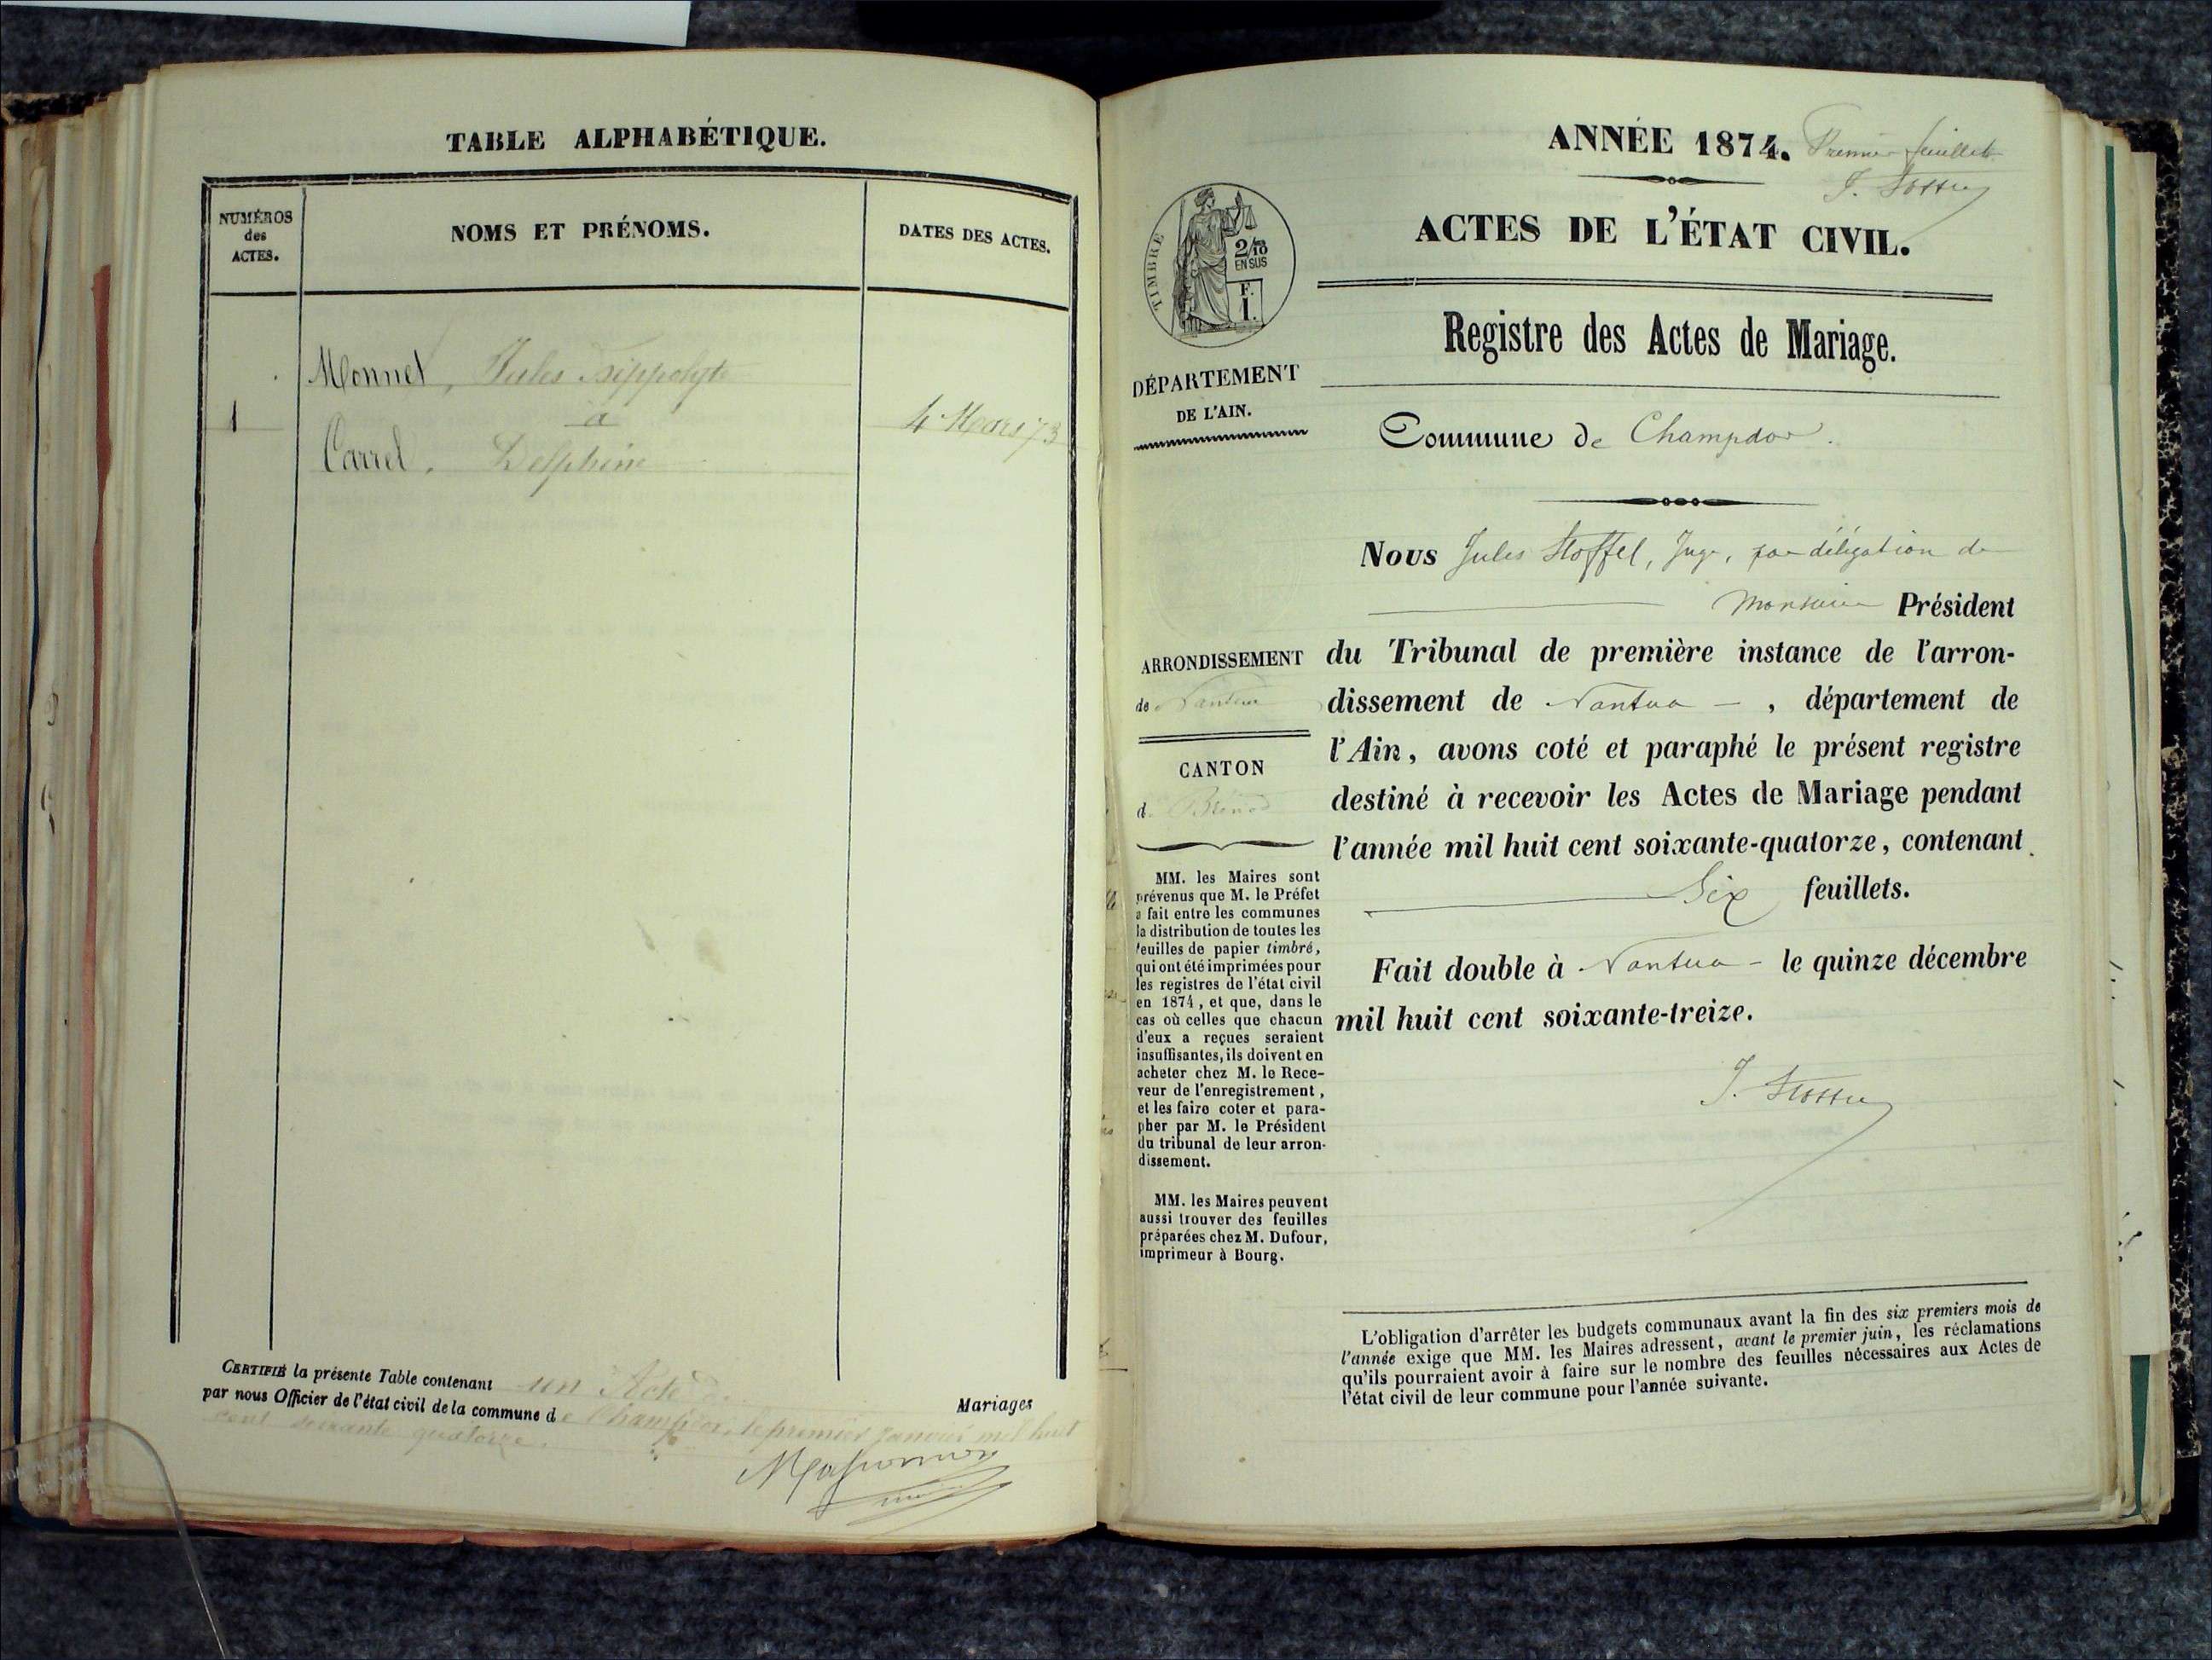 TABLE ALPHABÉTIQUE.
NUMÉROS
des
ACTES.
NOMS ET PRÉNOMS.
DATES DES ACTES.
Monnet, Jules Hippolyte
1
à
4 Mars 73
Carrel, Delphine
CERTIFIÉ la présente Table contenant un Acte de Mariages
par nous Officier de l'état civil de la commune de Champdor, le premier janvier mil huit
cent soixante quatorze.
ANNÉE 1874. Premier feuillet
ACTES DE L'ÉTAT CIVIL.
TIMBRE
2/10
EN SUS
F.
1.
Registre des Actes de Mariage.
DÉPARTEMENT
DE L'AIN.
Commune de Champdor.
Nous Jules Stoffel, Juge, par délégation de
Monsieur Président
du Tribunal de première instance de l'arron-
dissement de Nantua, département de
l'Ain, avons coté et paraphé le présent registre
destiné à recevoir les Actes de Mariage pendant
l'année mil huit cent soixante-quatorze, contenant
Six feuillets.
Fait double à Nantua le quinze décembre
mil huit cent soixante-treize.
ARRONDISSEMENT
de Nantua
CANTON
de Brénod
MM. les Maires sont
prévenus que M. le Préfet
a fait entre les communes
la distribution de toutes les
feuilles de papier timbré,
qui ont été imprimées pour
les registres de l'état civil
en 1874, et que, dans le
cas où celles que chacun
d'eux a reçues seraient
insuffisantes, ils doivent en
acheter chez M. le Rece-
veur de l'enregistrement,
et les faire coter et para-
pher par M. le Président
du tribunal de leur arron-
dissement.
MM. les Maires peuvent
aussi trouver des feuilles
préparées chez M. Dufour,
imprimeur à Bourg.
L'obligation d'arrêter les budgets communaux avant la fin des six premiers mois de
l'année exige que MM. les Maires adressent, avant le premier juin, les réclamations
qu'ils pourraient avoir à faire sur le nombre des feuilles nécessaires aux Actes de
l'état civil de leur commune pour l'année suivante.